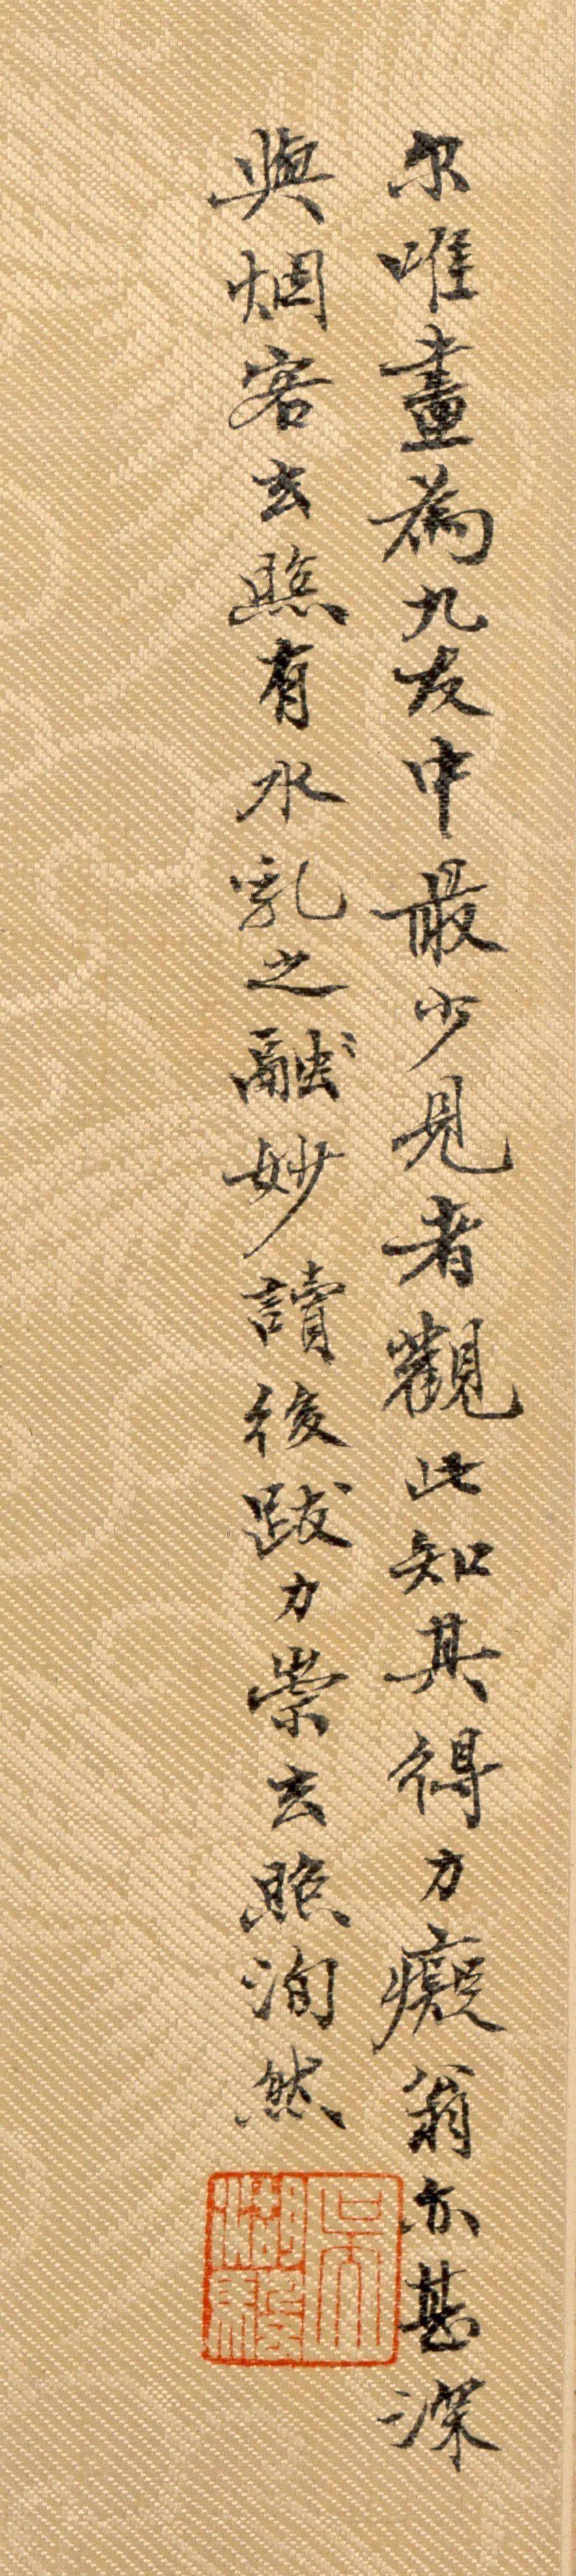 尔唯畫為九友中最少見者觀此知其得力癡翁亦甚深
與烟客玄照有水乳之融妙讀後跋力崇玄照洵然
吳湖帆